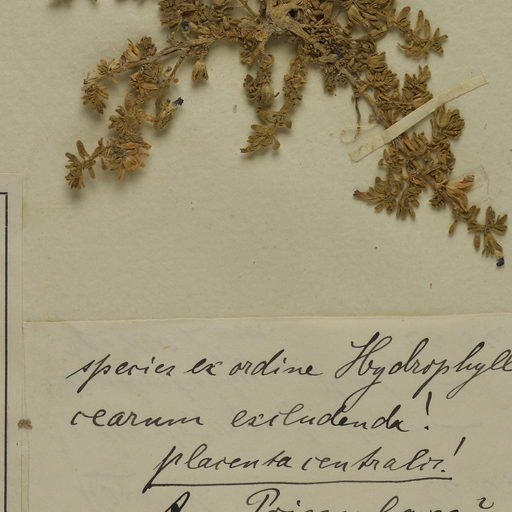 species ex ordine Hydrophyll
cearum excludenda!
placenta centralis!